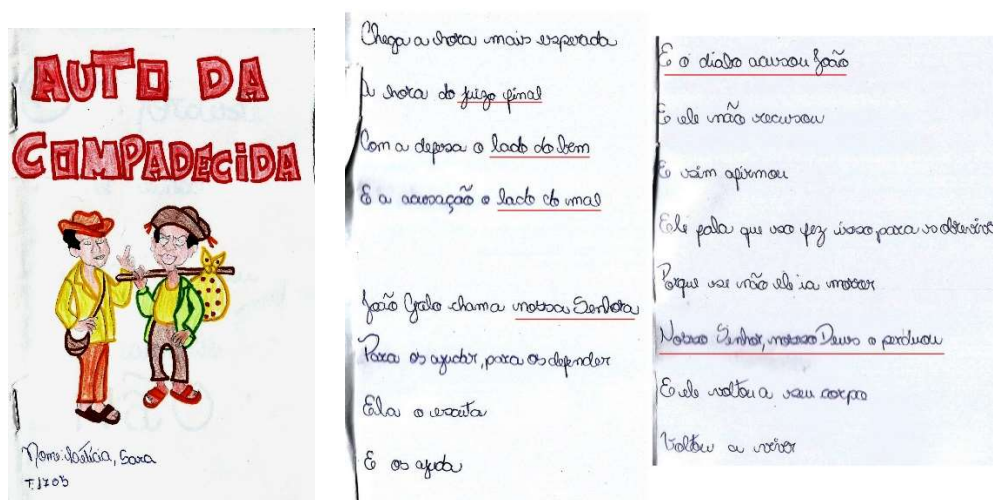 AUTO DA
COMPADECIDA
Nome: Laetícia, Sara
T. 1703
Chega a hora mais esperada
A hora do juízo final
Com a defesa o lado do bem
E a acusação o lado do mal
João Grilo chama nossa Senhora
Para os ajudar, para os defender
Ela o escuta
E os ajuda
E o diabo acusou João
E ele não recusou
E sim afirmou
Ele fala que so fez isso para sobreviver
Porque se não ele ia morrer
Nosso Senhor, nosso Deus o perduou
E ele voltou a seu corpo
Voltou a viver